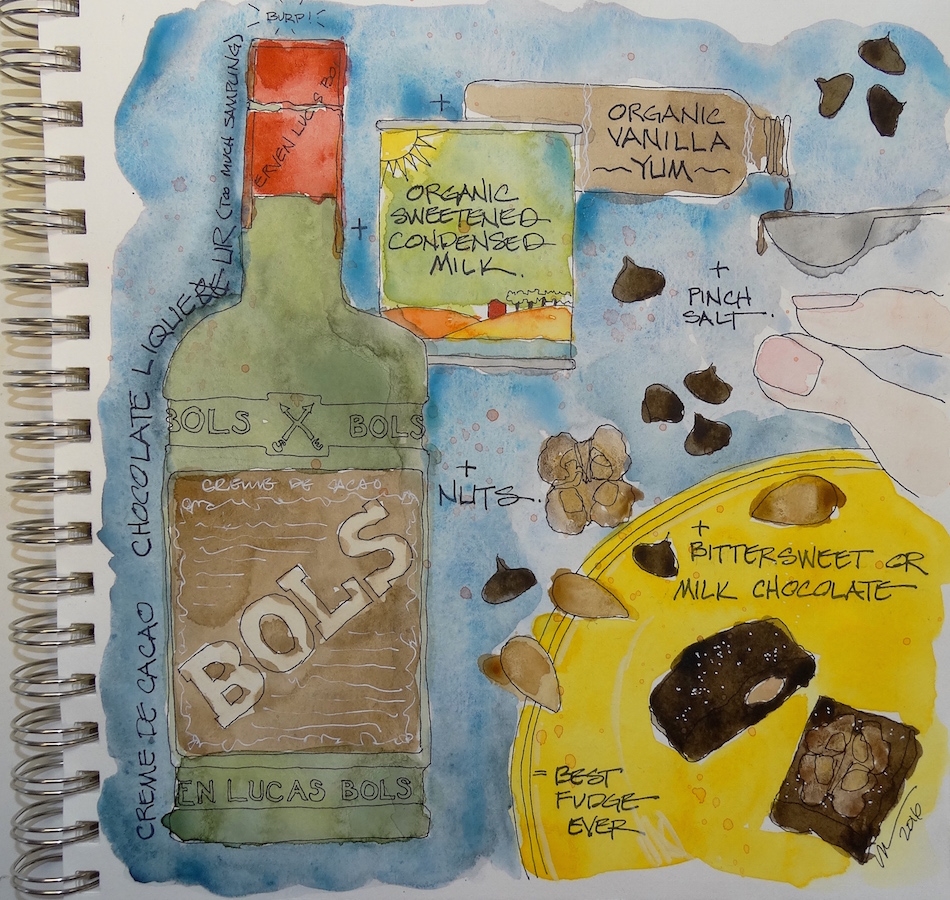 BURP!
CREME DE CACAO CHOCOLATE LIQUE UR (TOO MUCH SAMPLING)
ERVEN LUCAS BO
BOLS BOLS
CREME DE CACAO
BOLS
EN LUCAS BOLS
+
ORGANIC
SWEETENED
CONDENSED
MILK.
+
ORGANIC
VANILLA
~YUM~
+
PINCH
SALT.
+
NUTS.
+
BITTERSWEET OR
MILK CHOCOLATE
= BEST
FUDGE
EVER
2016